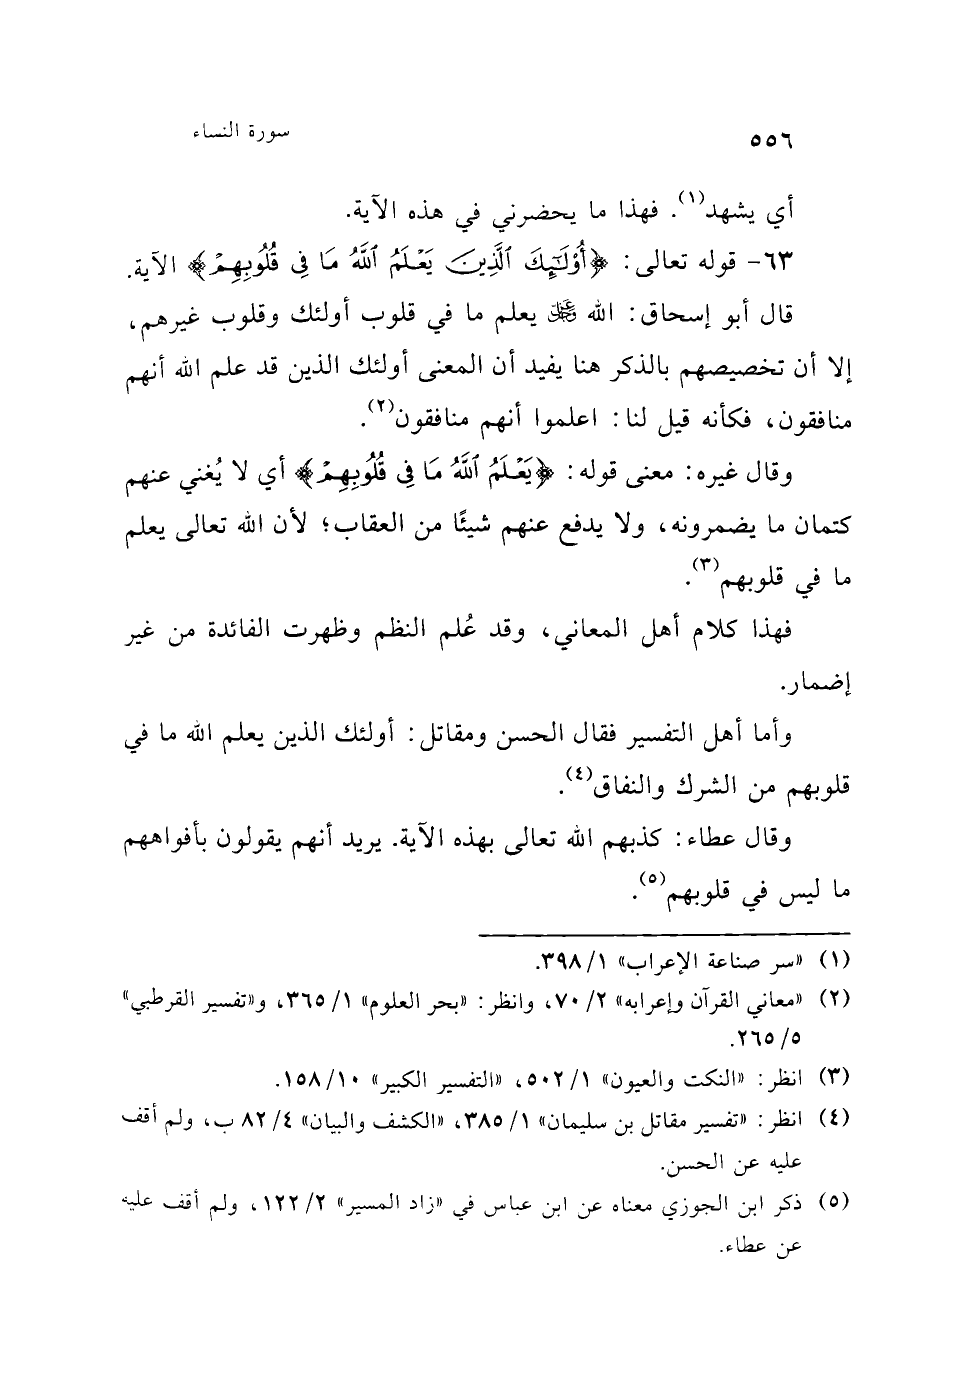 ٥٥٦ سورة النساء
أي يشهد(١). فهذا ما يحضرني في هذه الآية.
٦٣- قوله تعالى: ﴿أُوْلَٰٓئِكَ ٱلَّذِينَ يَعْلَمُ ٱللَّهُ مَا فِى قُلُوبِهِمْ﴾ الآية.
قال أبو إسحاق: الله ﷻ يعلم ما في قلوب أولئك وقلوب غيرهم،
إلا أن تخصيصهم بالذكر هنا يفيد أن المعنى أولئك الذين قد علم الله أنهم
منافقون، فكأنه قيل لنا: اعلموا أنهم منافقون(٢).
وقال غيره: معنى قوله: ﴿يَعْلَمُ ٱللَّهُ مَا فِى قُلُوبِهِمْ﴾ أي لا يُغني عنهم
كتمان ما يضمرونه، ولا يدفع عنهم شيئًا من العقاب؛ لأن الله تعالى يعلم
ما في قلوبهم(٣).
فهذا كلام أهل المعاني، وقد عُلم النظم وظهرت الفائدة من غير
إضمار.
وأما أهل التفسير فقال الحسن ومقاتل: أولئك الذين يعلم الله ما في
قلوبهم من الشرك والنفاق(٤).
وقال عطاء: كذبهم الله تعالى بهذه الآية. يريد أنهم يقولون بأفواههم
ما ليس في قلوبهم(٥).
(١) «سر صناعة الإعراب» ١/ ٣٩٨.
(٢) «معاني القرآن وإعرابه» ٢/ ٧٠، وانظر: «بحر العلوم» ١/ ٣٦٥، و«تفسير القرطبي»
٥/ ٢٦٥.
(٣) انظر: «النكت والعيون» ١/ ٥٠٢، «التفسير الكبير» ١٠/ ١٥٨.
(٤) انظر: «تفسير مقاتل بن سليمان» ١/ ٣٨٥، «الكشف والبيان» ٤/ ٨٢ ب، ولم أقف
عليه عن الحسن.
(٥) ذكر ابن الجوزي معناه عن ابن عباس في «زاد المسير» ٢/ ١٢٢، ولم أقف عليه
عن عطاء.